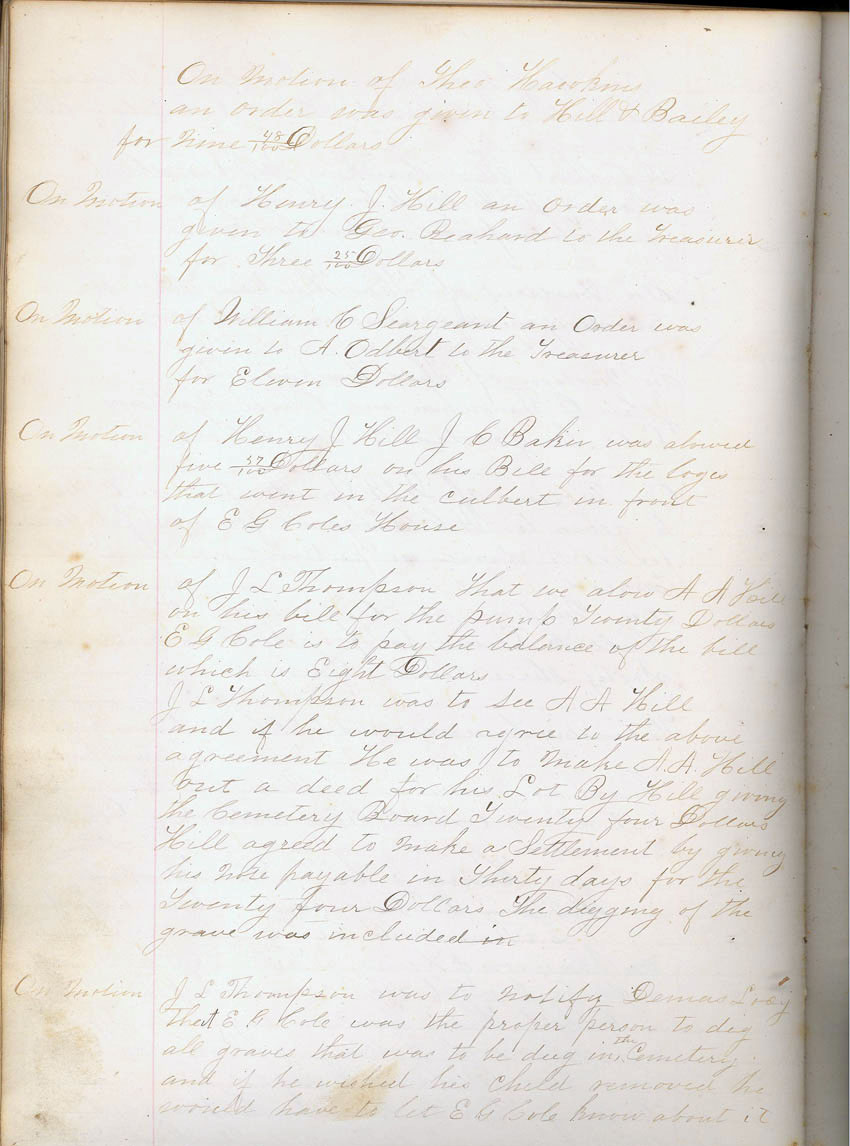 On Motion of Theo Hawkins
an order was given to Hill & Bailey
for Nine 48/100 Dollars
On Motion of Henry J. Hill an Order was
given to Geo. Reahard to the Treasurer
for Three 25/100 Dollars
On Motion of William C Seargeant an Order was
given to A. Odbert to the Treasurer
for Eleven Dollars
On Motion of Henry J Hill J C Baker was alowed
five 37/100 Dollars on his Bill for the loges
that went in the culbert in front
of E G Coles House
On Motion of J L Thompson That we alow A A Hill
on his bill for the pump Twenty Dollars
E G Cole is to pay the balance of the bill
which is Eight Dollars
J L Thompson was to see A A Hill
and if he would agree to the above
agreement He was to Make A.A. Hill
out a deed for his Lot By Hill giving
the Cemetery Board Twenty four Dollars
Hill agreed to Make a Settlement by giving
his Note payable in Thirty days for the
Twenty four Dollars The digging of the
grave was included in
On Motion J L Thompson was to Notify Demas Locy
that E G Cole was the proper person to dig
all graves that was to be dug in the Cemetery
and if he wished his Child removed he
would have to let E G Cole know about it